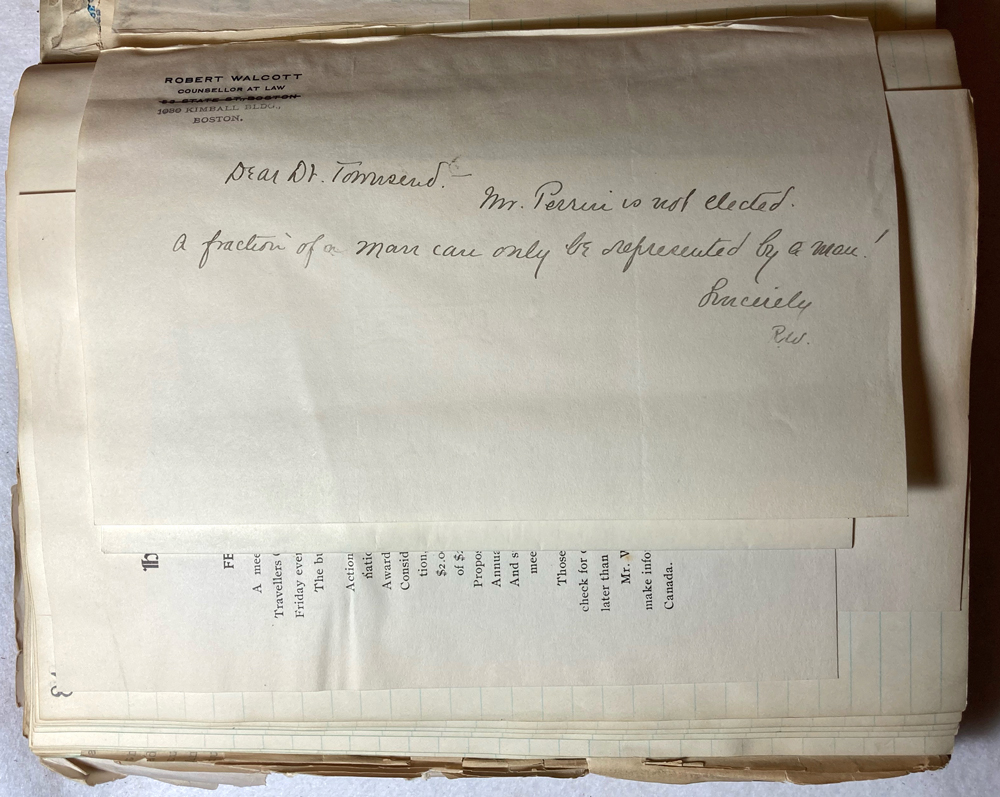 ROBERT WALCOTT
COUNSELLOR AT LAW
53 STATE ST., BOSTON
1039 KIMBALL BLDG.,
BOSTON.
Dear Dr. Townsend.
Mr. Perrin is not elected.
A fraction of a man can only be represented by a man!
Sincerely
R.W.
Th
FE
A mee
Travellers
Friday ever
The bu
Action
natio
Award
Consid
tion
$2.0
of $
Propos
Annua
And s
mee
Those
check for
later than
Mr. W
make info
Canada.
3